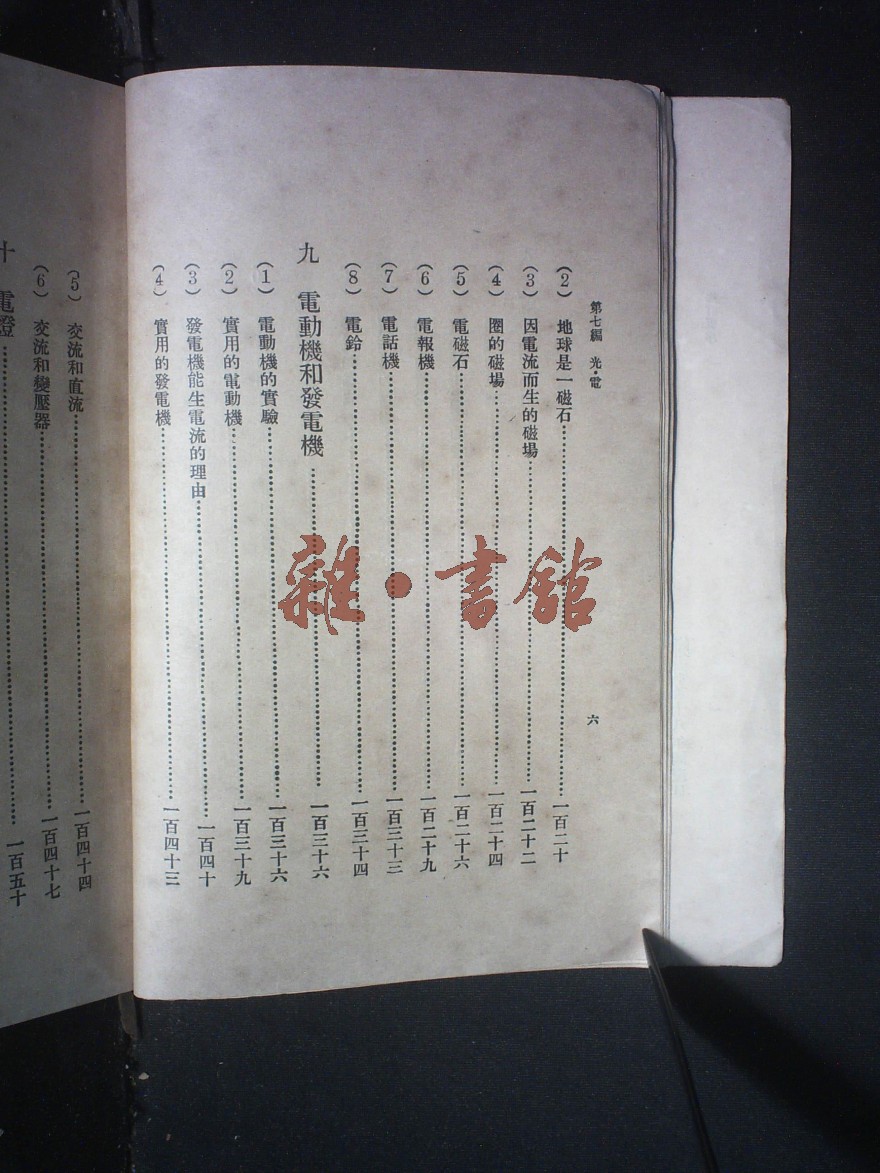 第七編　光·電
六
(2)　地球是一磁石……一百二十
(3)　因電流而生的磁場……一百二十二
(4)　圈的磁場……一百二十四
(5)　電磁石……一百二十六
(6)　電報機……一百二十九
(7)　電話機……一百三十三
(8)　電鈴……一百三十四
九　電動機和發電機……一百三十六
(1)　電動機的實驗……一百三十六
(2)　實用的電動機……一百三十九
(3)　發電機能生電流的理由……一百四十
(4)　實用的發電機……一百四十三
(5)　交流和直流……一百四十四
(6)　交流和變壓器……一百四十七
十　電燈……一百五十
雜·書館